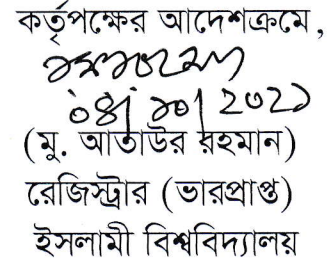 কর্তৃপক্ষের আদেশক্রমে,
০৪/১০/২০২১
(মু. আতাউর রহমান)
রেজিস্ট্রার (ভারপ্রাপ্ত)
ইসলামী বিশ্ববিদ্যালয়